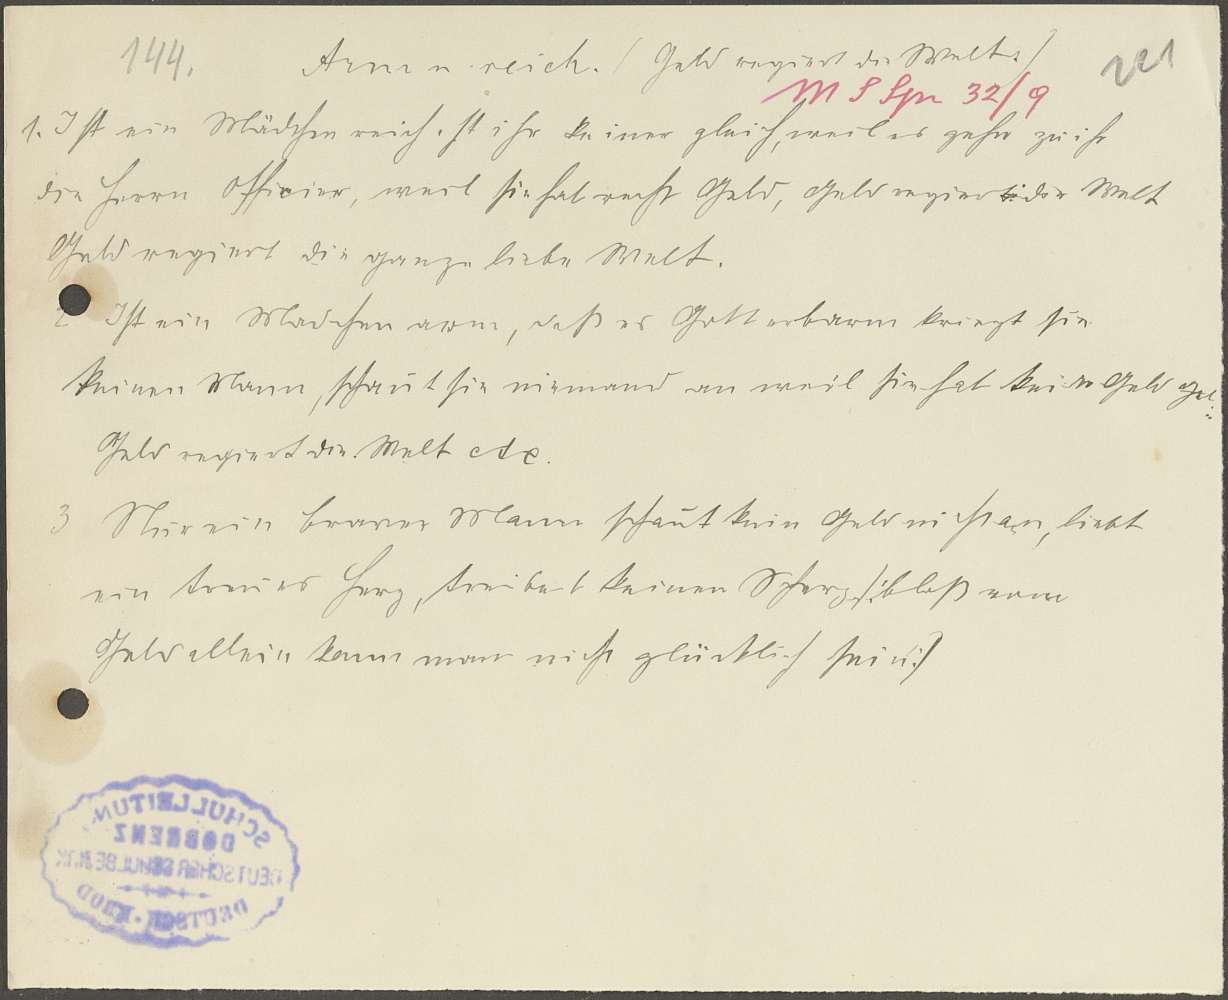 144. Arm u. reich. (Geld regiert die Welt.) 221
M S Spr 32/9
1. Ist ein Mädchen reich, ist ihr keiner gleich, weil es gehn zu ihr
die Herrn Officier, weil sie hat recht Geld, Geld regiert die Welt
Geld regiert die ganze liebe Welt.
2 Ist ein Madchen arm, daß es Gott erbarm kriegt sie
keinen Mann, schaut sie niemand an weil sie hat kein Geld
Geld regiert die Welt etc.
3 Nur ein braver Mann schaut kein Geld nicht an, liebt
ein treues Herz, treibet keinen Scherz /: bloß vom
Geld allein kann man nicht glücklich sein :/
SCHULLEITUN
DOBRENZ
DEUTSCHER SCHULBEZIRK
DEUTSCH-BROD